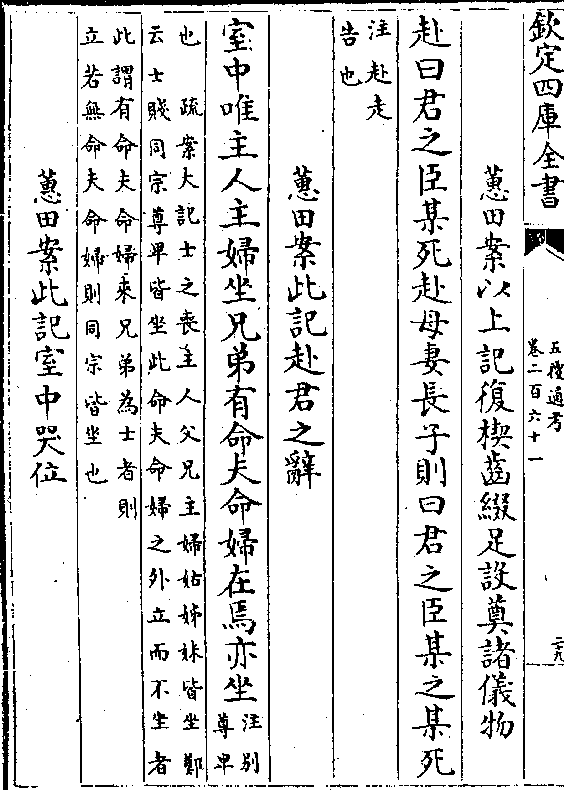 欽定四庫全書
五禮通考
卷二百六十一
二九
蕙田案以上記復楔齒綴足設奠諸儀物
赴曰君之臣某死赴母妻長子則曰君之臣某之某死
注赴走
告也
蕙田案此記赴君之辭
室中唯主人主婦坐兄弟有命夫命婦在焉亦坐
注别
尊卑
也 疏案大記士之喪主人父兄主婦姑姊妹皆坐鄭
云士賤同宗尊卑皆坐此命夫命婦之外立而不坐者
此謂有命夫命婦來兄弟為士者則
立若無命夫命婦則同宗皆坐也
蕙田案此記室中哭位